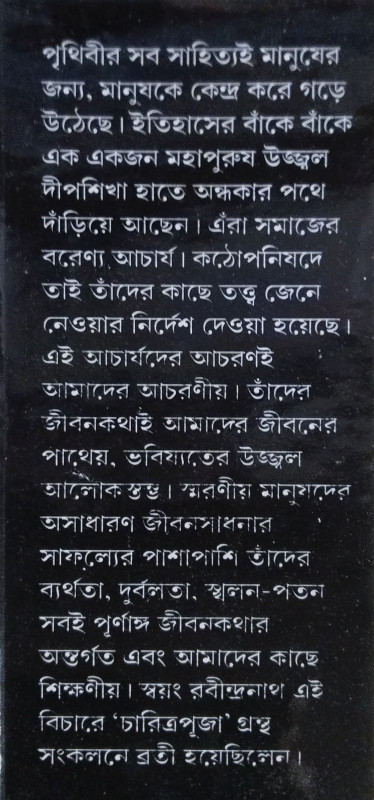 পৃথিবীর সব সাহিত্যই মানুষের
জন্য, মানুষকে কেন্দ্র করে গড়ে
উঠেছে। ইতিহাসের বাঁকে বাঁকে
এক একজন মহাপুরুষ উজ্জ্বল
দীপশিখা হাতে অন্ধকার পথে
দাঁড়িয়ে আছেন। এঁরা সমাজের
বরেণ্য আচার্য। কঠোপনিষদে
তাই তাঁদের কাছে তত্ত্ব জেনে
নেওয়ার নির্দেশ দেওয়া হয়েছে।
এই আচার্যদের আচরণই
আমাদের আচরণীয়। তাঁদের
জীবনকথাই আমাদের জীবনের
পাথেয়, ভবিষ্যতের উজ্জ্বল
আলোকস্তম্ভ। স্মরণীয় মানুষদের
অসাধারণ জীবনসাধনার
সাফল্যের পাশাপাশি তাঁদের
ব্যর্থতা, দুর্বলতা, স্খলন-পতন
সবই পূর্ণাঙ্গ জীবনকথার
অন্তর্গত এবং আমাদের কাছে
শিক্ষণীয়। স্বয়ং রবীন্দ্রনাথ এই
বিচারে ‘চারিত্রপূজা’ গ্রন্থ
সংকলনে ব্রতী হয়েছিলেন।